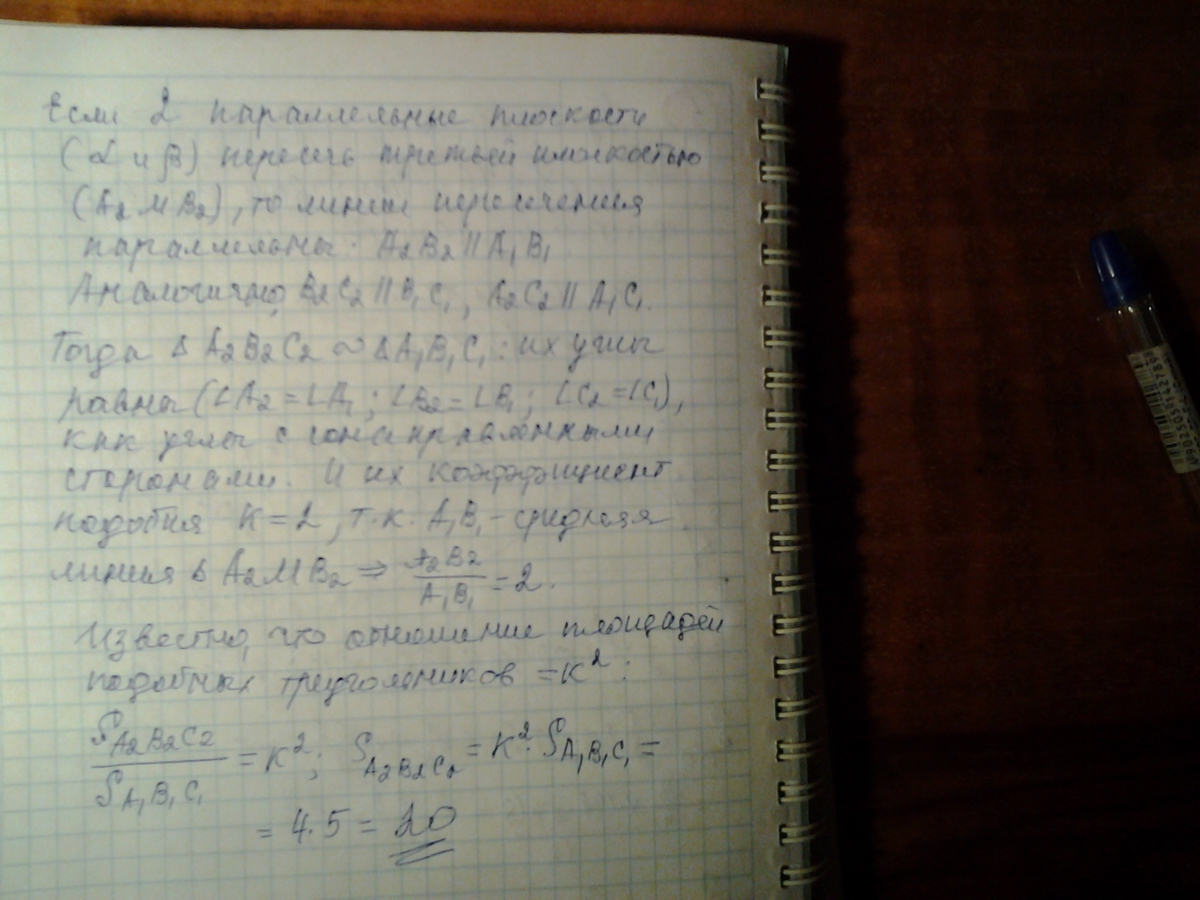 Если 2 параллельные плоскости
(α и β) пересечь третьей плоскостью
(A₂MB₂), то линии пересечения
параллельны: A₂B₂ || A₁B₁
Аналогично, B₂C₂ || B₁C₁, A₂C₂ || A₁C₁.
Тогда Δ A₂B₂C₂ ~ Δ A₁B₁C₁: их углы
равны (∠A₂ = ∠A₁; ∠B₂ = ∠B₁; ∠C₂ = ∠C₁),
как углы с сонаправленными
сторонами. И их коэффициент
подобия K = 2, т.к. A₁B₁ - средняя
линия Δ A₂MB₂ ⇒ A₂B₂/A₁B₁ = 2.
Известно, что отношение площадей
подобных треугольников = K²:
S A₂B₂C₂ / S A₁B₁C₁ = K²; S A₂B₂C₂ = K² · S A₁B₁C₁ =
= 4 · 5 = 20